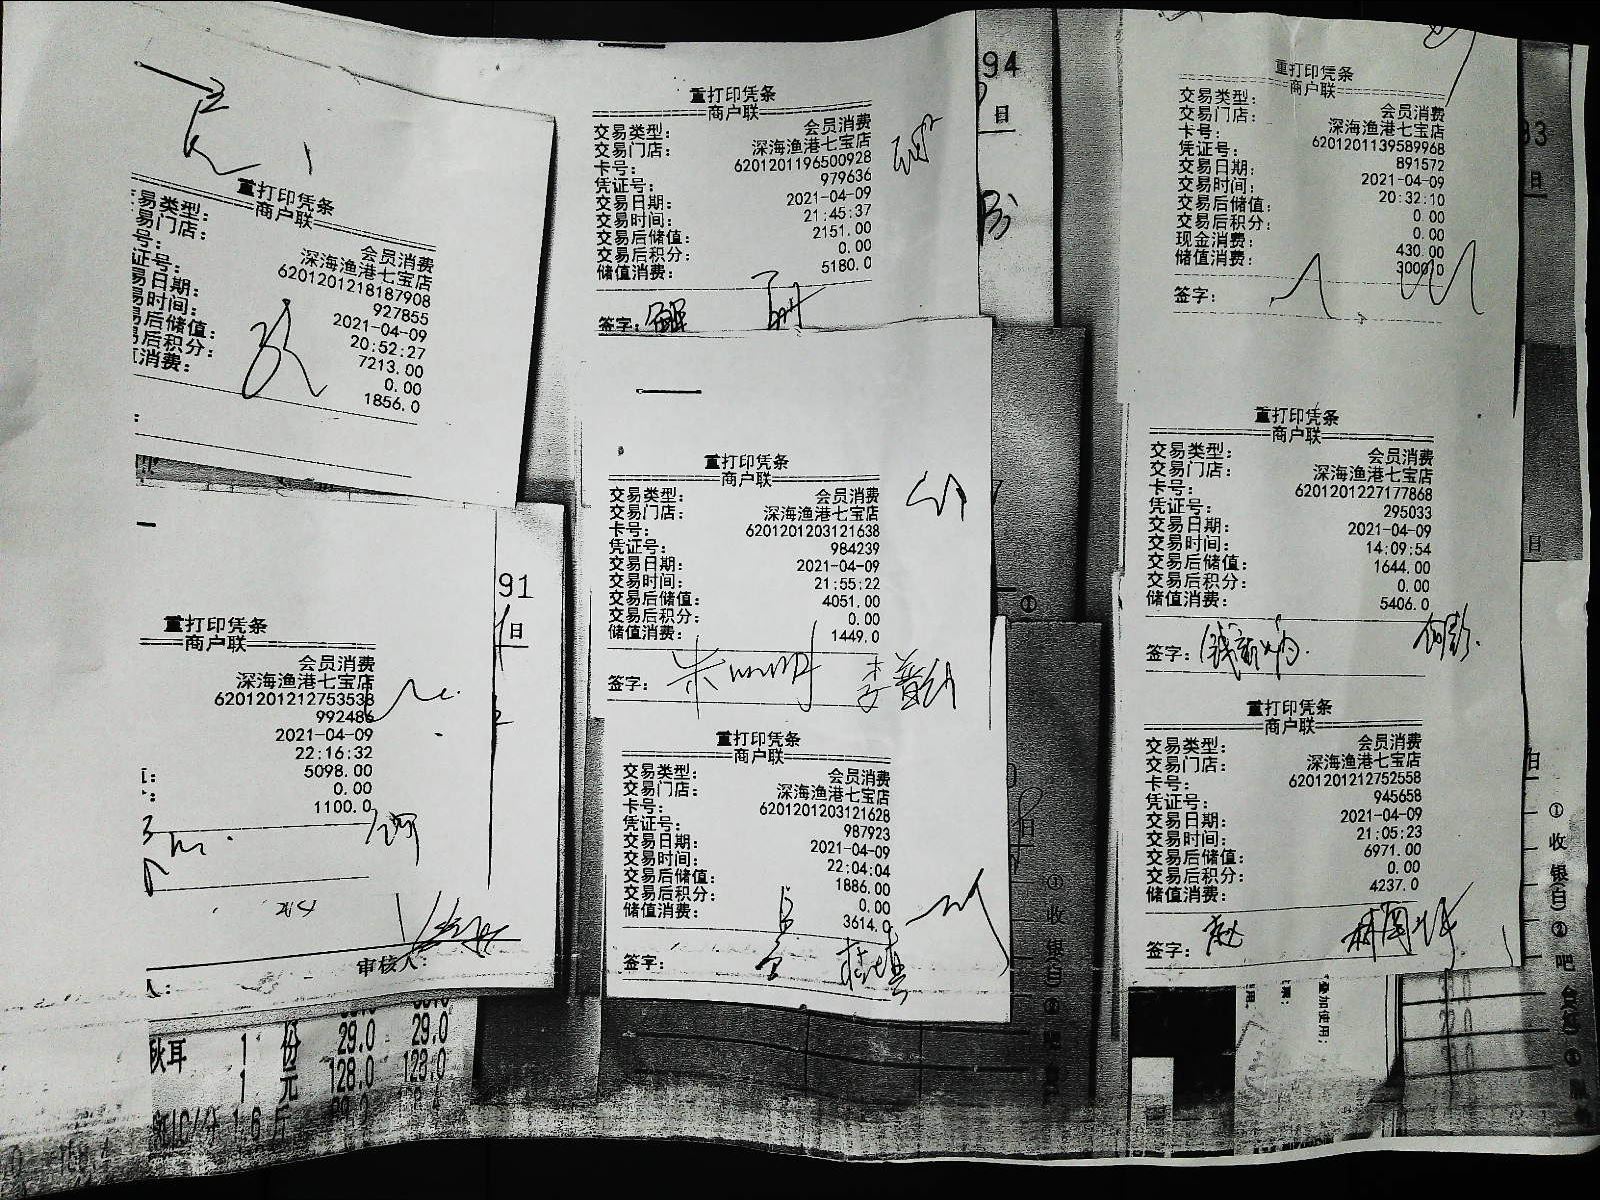 重打印凭条
商户联
易类型：
会员消费
易门店：
深海渔港七宝店
号：
6201201218187908
证号：
927855
易日期：
2021-04-09
易时间：
20:52:27
易后储值：
7213.00
易后积分：
0.00
消费：
1856.0
重打印凭条
商户联
会员消费
深海渔港七宝店
6201201212753538
992486
2021-04-09
22:16:32
5098.00
0.00
1100.0
91
日
审核人：
秋耳 1 份 29.0 29.0
1 元 128.0 128.0
重打印凭条
商户联
交易类型： 会员消费
交易门店： 深海渔港七宝店
卡号： 6201201196500928
凭证号： 979636
交易日期： 2021-04-09
交易时间： 21:45:37
交易后储值： 2151.00
交易后积分： 0.00
储值消费： 5180.0
签字：
94
日
重打印凭条
商户联
交易类型： 会员消费
交易门店： 深海渔港七宝店
卡号： 6201201203121638
凭证号： 984239
交易日期： 2021-04-09
交易时间： 21:55:22
交易后储值： 4051.00
交易后积分： 0.00
储值消费： 1449.0
签字：
重打印凭条
商户联
交易类型： 会员消费
交易门店： 深海渔港七宝店
卡号： 6201201203121628
凭证号： 987923
交易日期： 2021-04-09
交易时间： 22:04:04
交易后储值： 1886.00
交易后积分： 0.00
储值消费： 3614.0
签字：
重打印凭条
商户联
交易类型： 会员消费
交易门店： 深海渔港七宝店
卡号： 6201201139589968
凭证号： 891572
交易日期： 2021-04-09
交易时间： 20:32:10
交易后储值： 0.00
交易后积分： 0.00
现金消费： 430.00
储值消费： 3000.0
签字：
93
日
重打印凭条
商户联
交易类型： 会员消费
交易门店： 深海渔港七宝店
卡号： 6201201227177868
凭证号： 295033
交易日期： 2021-04-09
交易时间： 14:09:54
交易后储值： 1644.00
交易后积分： 0.00
储值消费： 5406.0
签字：
日
重打印凭条
商户联
交易类型： 会员消费
交易门店： 深海渔港七宝店
卡号： 6201201212752558
凭证号： 945658
交易日期： 2021-04-09
交易时间： 21:05:23
交易后储值： 6971.00
交易后积分： 0.00
储值消费： 4237.0
签字：
①收银(白)②吧